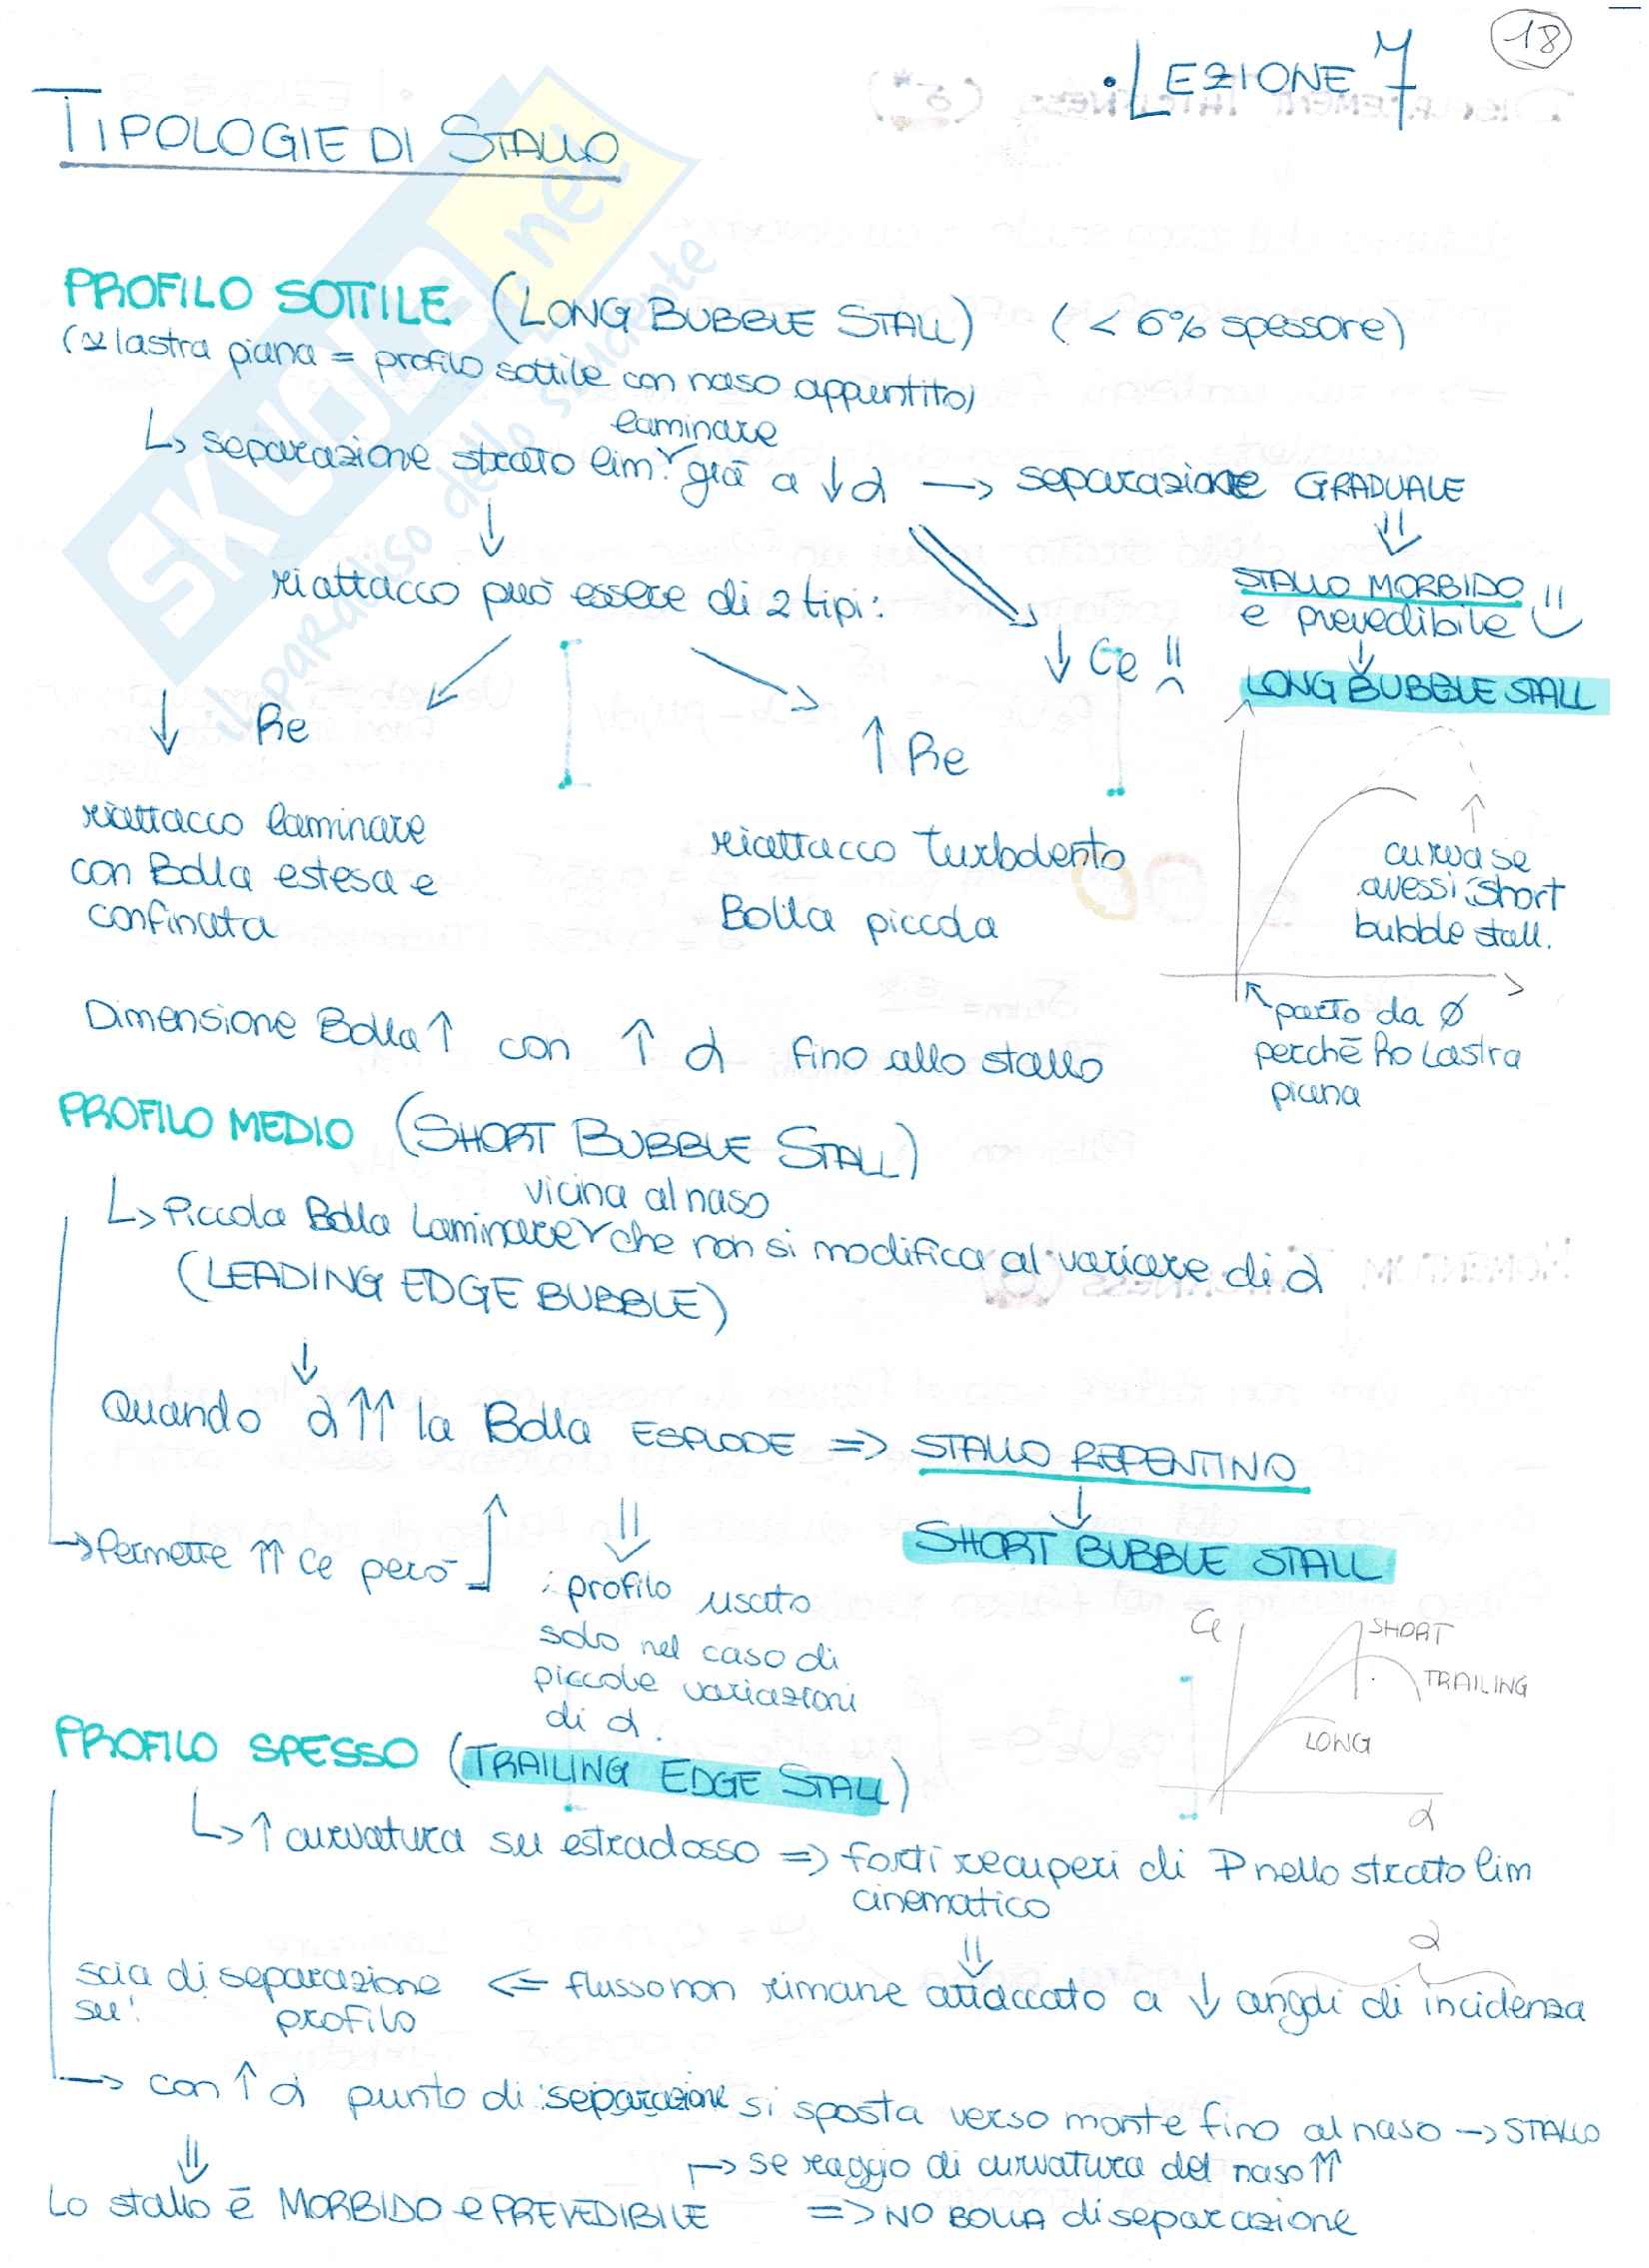 18
• LEZIONE 7
TIPOLOGIE DI STALLO
PROFILO SOTTILE (LONG BUBBLE STALL) (< 6% spessore)
(≃ lastra piana = profilo sottile con naso appuntito)
laminare
↳ separazione strato lim. già a ↓α → separazione GRADUALE
↓
⇓
riattacco può essere di 2 tipi:
STALLO MORBIDO
e prevedibile
↓ Cl
↓
LONG BUBBLE STALL
↓ Re
↑ Re
riattacco laminare
con Bolla estesa e
confinata
riattacco turbolento
Bolla piccola
curva se
avessi short
bubble stall.
parto da ø
perchè ho lastra
piana
Dimensione Bolla ↑ con ↑ α fino allo stallo
PROFILO MEDIO (SHORT BUBBLE STALL)
vicina al naso
↳ Piccola Bolla Laminare che non si modifica al variare di α
(LEADING EDGE BUBBLE)
↓
Quando α↑↑ la Bolla ESPLODE ⇒ STALLO REPENTINO
↓
SHORT BUBBLE STALL
→ Permette ↑↑ Cl però
⇓
profilo usato
solo nel caso di
piccole variazioni
di α.
Cl
SHORT
TRAILING
LONG
α
PROFILO SPESSO (TRAILING EDGE STALL)
↳ ↑ curvatura su estradosso ⇒ forti recuperi di P nello strato lim
cinematico
⇓
α
scia di separazione ⇐ flusso non rimane attaccato a ↓ angoli di incidenza
su' profilo
→ con ↑ α punto di separazione si sposta verso monte fino al naso → STALLO
⇓
↱ se raggio di curvatura del naso ↑↑
Lo stallo è MORBIDO e PREVEDIBILE ⇒ NO BOLLA di separazione
SKUOLA.net
il paradiso dello studente